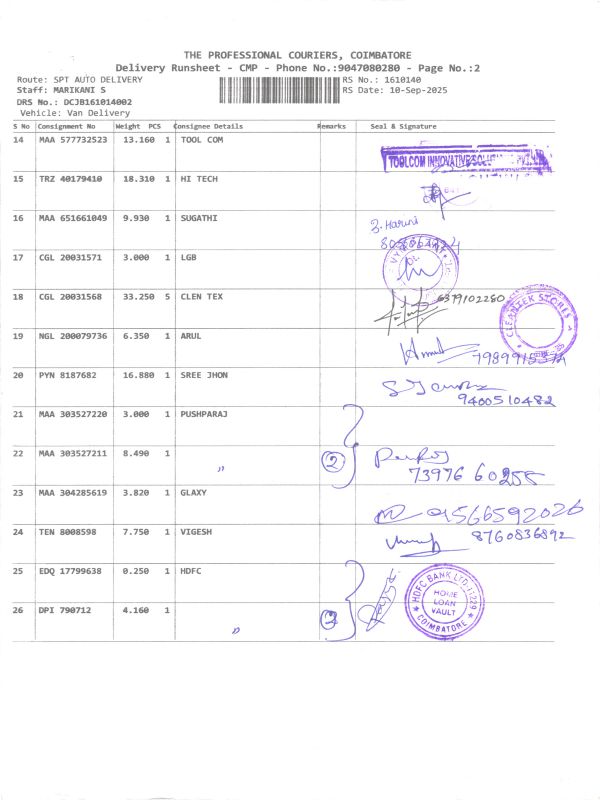 THE PROFESSIONAL COURIERS, COIMBATORE
Delivery Runsheet - CMP - Phone No.:9047080280 - Page No.:2
Route: SPT AUTO DELIVERY RS No.: 1610140
Staff: MARIKANI S RS Date: 10-Sep-2025
DRS No.: DCJB161014002
Vehicle: Van Delivery
S No Consignment No Weight PCS Consignee Details Remarks Seal & Signature
14 MAA 577732523 13.160 1 TOOL COM
TOOLCOM INNOVATIVE
15 TRZ 40179410 18.310 1 HI TECH
16 MAA 651661049 9.930 1 SUGATHI
17 CGL 20031571 3.000 1 LGB
18 CGL 20031568 33.250 5 CLEN TEX 6379102280 CLEANTEK STORES
19 NGL 200079736 6.350 1 ARUL
20 PYN 8187682 16.880 1 SREE JHON
9400510482
21 MAA 303527220 3.000 1 PUSHPARAJ
22 MAA 303527211 8.490 1 〃 2
73976 60255
23 MAA 304285619 3.820 1 GLAXY
9566592026
24 TEN 8008598 7.750 1 VIGESH 8760836892
25 EDQ 17799638 0.250 1 HDFC
HDFC BANK LTD
HOME
LOAN
VAULT
COIMBATORE
26 DPI 790712 4.160 1 〃 2